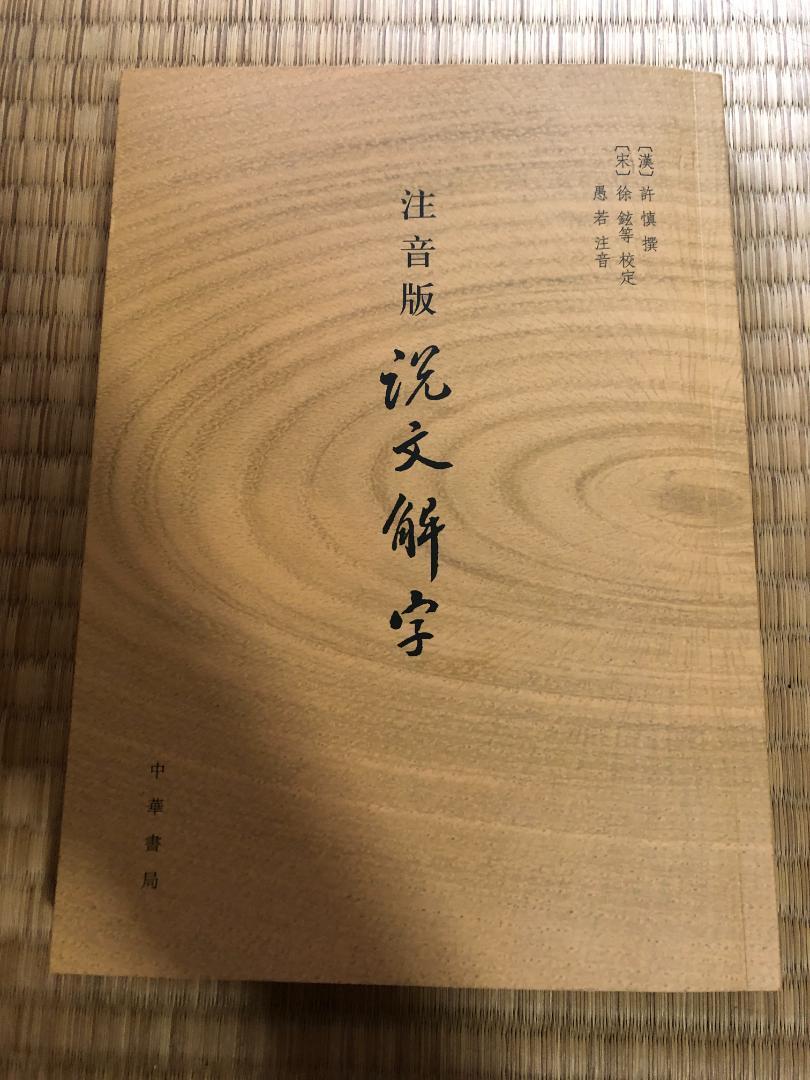 〔漢〕許慎 撰
〔宋〕徐鉉等 校定
愚若 注音
注音版
说文解字
中華書局